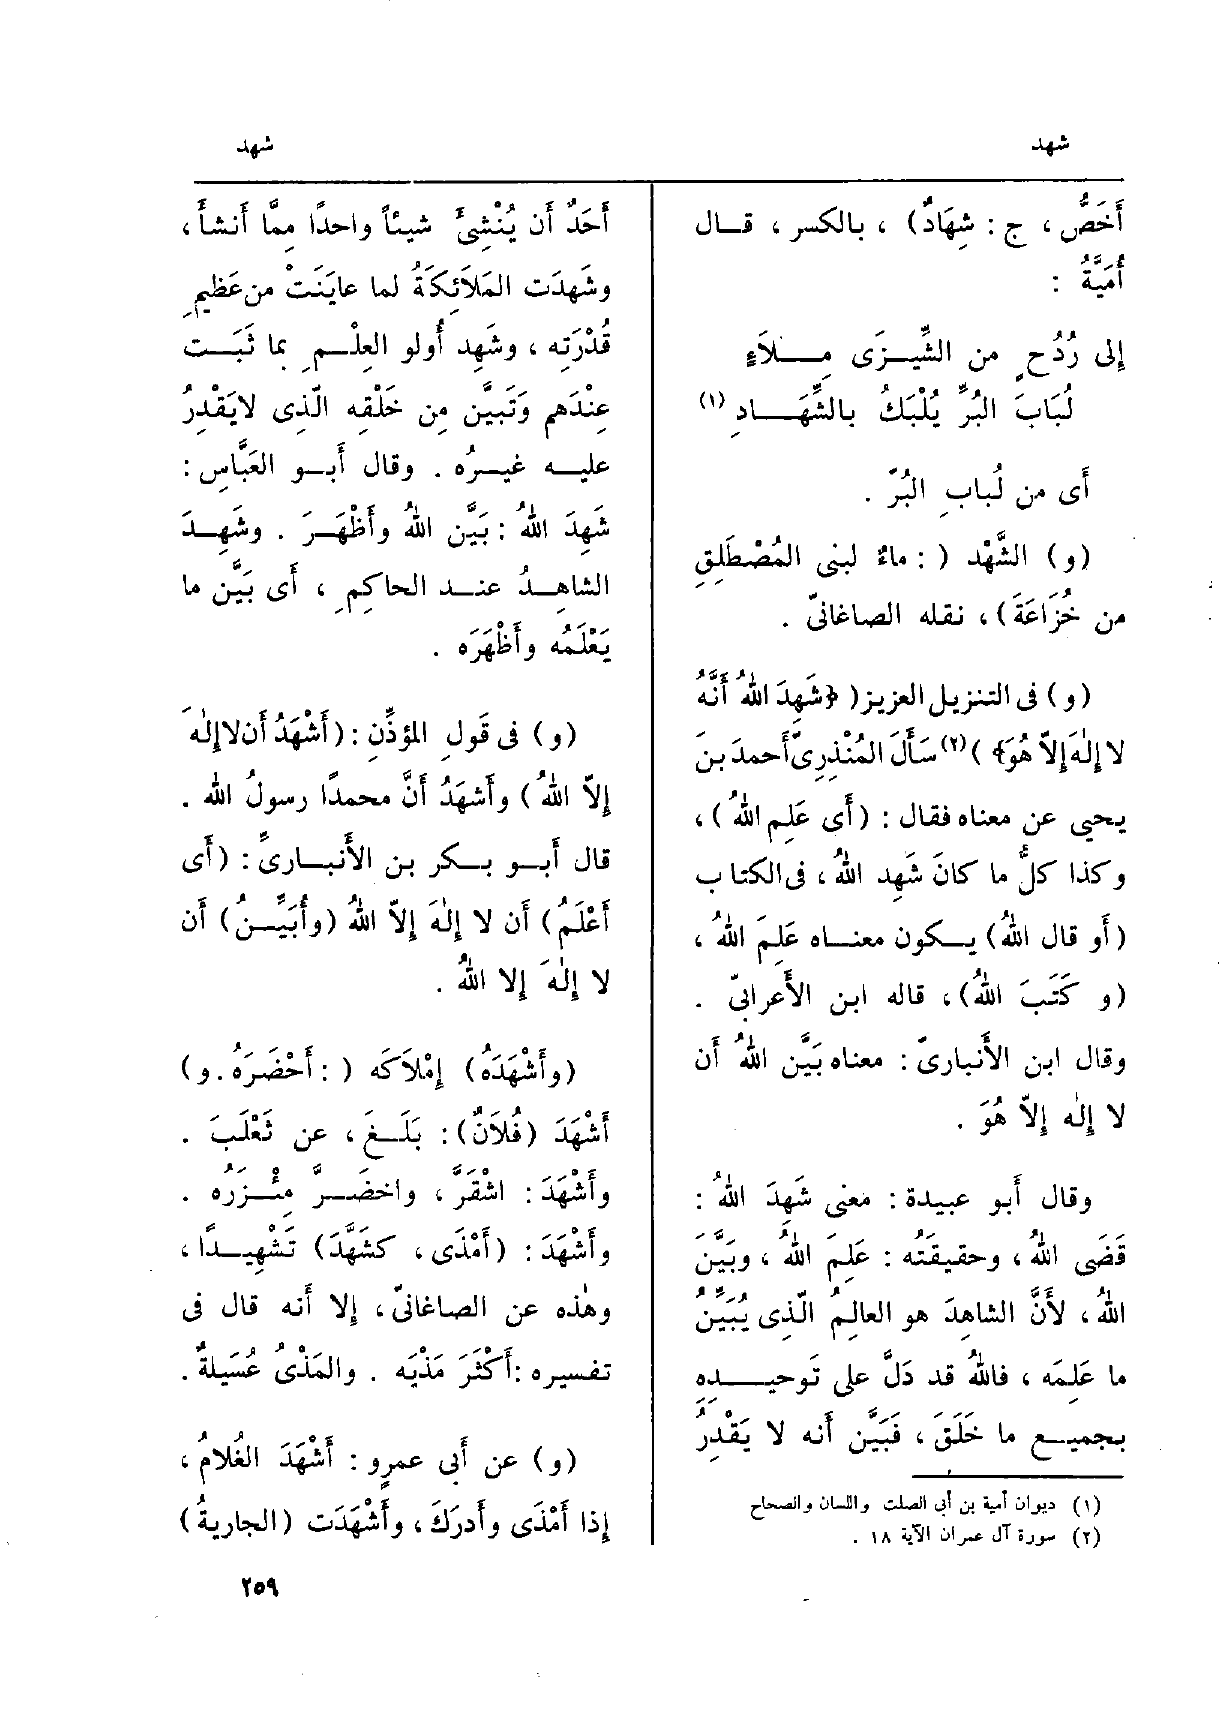 شهد
شهد
أَخَصُّ ، ج : شِهَادٌ) ، بالكسر ، قـال
أُمَيَّةُ :
إلى رُدُحٍ من الشِّيـزَى مِـلاَءٍ
لُبَابَ البُرِّ يُلْبَكُ بالشِّهَـادِ (١)
أى من لُبابِ البُرِّ .
(و) الشَّهْد ( : ماءٌ لبنى المُصْطَلِقِ
من خُزَاعَةَ) ، نقله الصاغانىّ .
(و) فى التنزيل العزيز ( ﴿شَهِدَ اللهُ أَنَّهُ
لا إِلٰهَ إِلاّ هُوَ﴾ ) (٢) سَأَلَ المُنْذِرِىّ أَحمدَ بنَ
يحيى عن معناه فقال : (أَى عَلِمِ اللهُ) ،
وكذا كلُّ ما كانَ شَهِد اللهُ ، فى الكتاب
(أَو قال اللهُ) يـكون معنـاه عَلِمَ اللهُ ،
(و كَتَبَ اللهُ) ، قاله ابن الأَعرابىّ .
وقال ابن الأَنبارىّ : معناه بَيَّن اللهُ أَن
لا إِلٰه إِلاّ هُوَ .
وقال أَبو عبيدة : معنى شَهِدَ اللهُ :
قَضَى اللهُ ، وحقيقَتُه : عَلِمَ اللهُ ، وبَيَّنَ
اللهُ ، لأَنَّ الشاهِدَ هو العالِمُ الّذِى يُبَيِّنُ
ما عَلِمَه ، فاللهُ قد دَلَّ على تَوحيـدِه
بجميـع ما خَلَقَ ، فَبَيَّن أَنه لا يَقْدِرُ
(١) ديوان أمية بن أبى الصلت واللسان والصحاح
(٢) سورة آل عمران الآية ١٨ .
أَحَدٌ أَن يُنْشِئَ شيئاً واحدًا مِمَّا أَنشأَ ،
وشَهِدَت المَلاَئكةُ لما عايَنَتْ من عَظِيمِ
قُدْرَتِه ، وشَهِد أُولو العِلْـمِ بما ثَبَـت
عِنْدَهم وَتَبيَّن مِن خَلْقِه الّذى لايَقْدِرُ
عليـه غيـرُه . وقال أَبـو العَبَّاس :
شَهِدَ اللهُ : بَيَّن اللهُ وأَظْهَـرَ . وشَهِـدَ
الشاهِـدُ عنـد الحاكِمِ ، أَى بَيَّن ما
يَعْلَمُه وأَظْهَرَه .
(و) فى قَولِ المؤذِّن : (أَشْهَدُ أَن لا إِلٰهَ
إِلاّ اللهُ) وأَشهَدُ أَنَّ محمدًا رسولُ الله .
قال أَبـو بـكر بن الأَنبـارىّ : (أَى
أَعْلَمُ) أَن لا إِلٰهَ إِلاّ اللهُ (وأُبَيِّـنُ) أَن
لا إِلٰهَ إلا اللهُ .
(وأَشْهَدَهُ) إِمْلاَكَه ( : أَحْضَرَهُ . و)
أَشْهَدَ (فُلاَنٌ) : بَلَـغَ ، عن ثَعْلَب .
وأَشْهَدَ : اشْقَرَّ ، واخضَـرَّ مِئْـزَرُه .
وأَشْهَدَ : (أَمْذَى ، كشَهَّدَ) تَشْهِيـدًا ،
وهٰذه عن الصاغانىّ ، إلا أَنه قال فى
تفسيره : أَكْثَرَ مَذْيَه . والمَذْىُ عُسَيلةٌ .
(و) عن أَبى عمرٍو : أَشْهَدَ الغُلامُ ،
إِذا أَمْذَى وأَدرَكَ ، وأَشْهَدَت (الجاريةُ)
٢٥٩